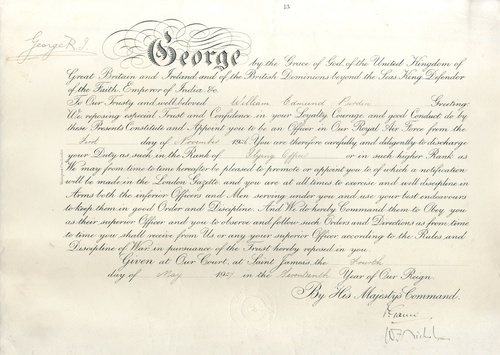 George R.I.
George by the Grace of God, of the United Kingdom of
Great Britain and Ireland and of the British Dominions beyond the Seas, King, Defender
of the Faith, Emperor of India, &c.
To Our Trusty and well beloved William Edmund Purdin Greeting:
We reposing especial Trust and Confidence in your Loyalty, Courage, and good Conduct do by
these Presents Constitute and Appoint you to be an Officer in Our Royal Air Force from the
day of November 1926 You are therefore carefully and diligently to discharge
your Duty as such in the Rank of Flying Officer or in such higher Rank as
We may from time to time hereafter be pleased to promote or appoint you to, of which a notification
will be made in the London Gazette, and you are at all times to exercise and well discipline in
Arms both the inferior Officers and Men serving under you and use your best endeavours
to keep them in good Order and Discipline. And We do hereby Command them to Obey you
as their superior Officer and you to observe and follow such Orders and Directions as from time
to time you shall receive from Us or any your superior Officer according to the Rules and
Discipline of War, in pursuance of the Trust hereby reposed in you.
Given at Our Court, at Saint James's the Fourth
day of May 1927 in the Seventeenth Year of Our Reign
By His Majesty's Command.